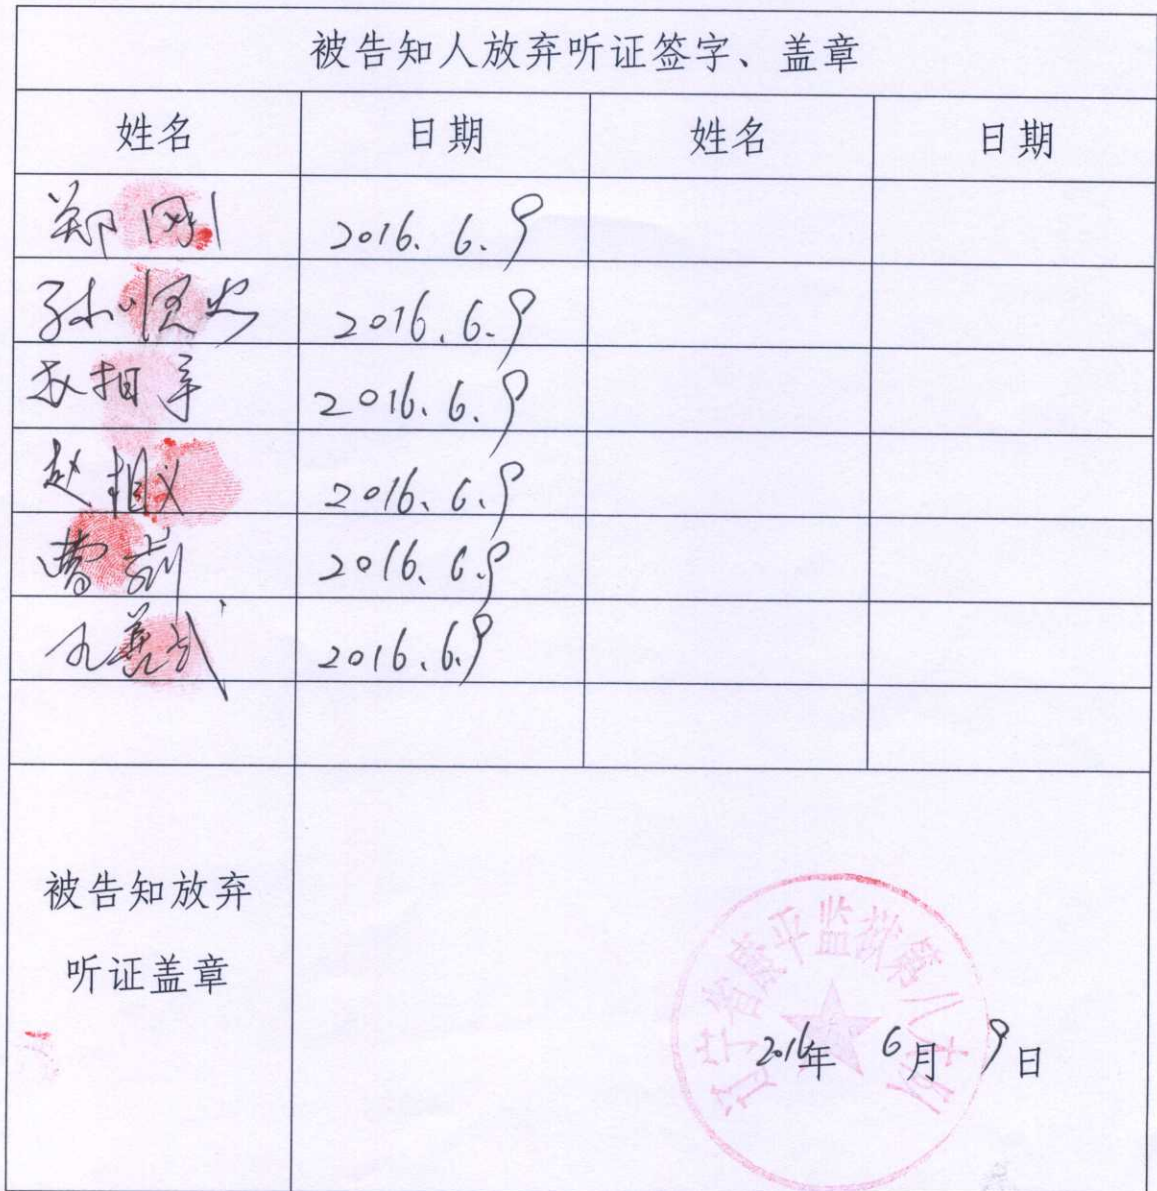 被告知人放弃听证签字、盖章
姓名 日期 姓名 日期
郑刚 2016.6.9
2016.6.9
2016.6.9
赵相义 2016.6.9
曹 2016.6.9
2016.6.9
被告知放弃
听证盖章
辽宁省康平监狱第八大队
2016年 6月 9日